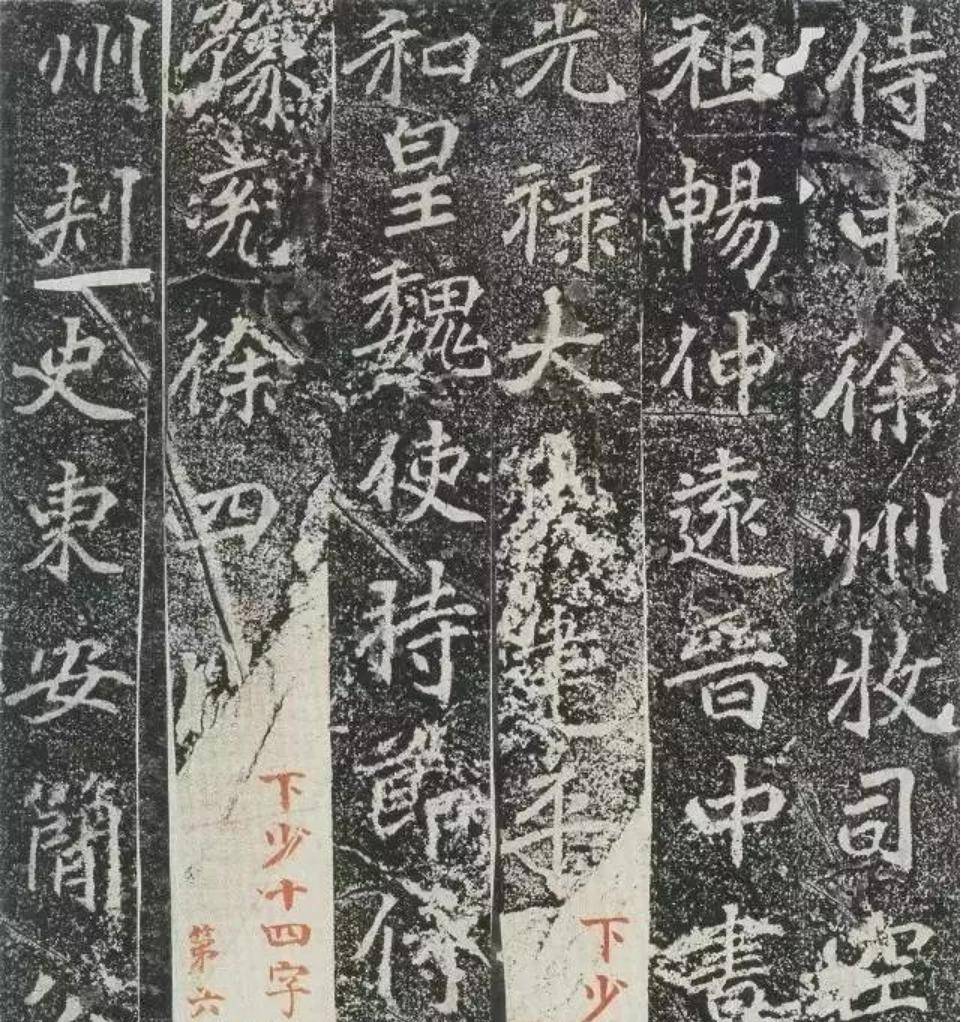 侍中徐州牧司空
祖暢仲遠晉中書
光祿大建平
下少
和皇魏使持節侍
豫兗徐四
下少十四字
第六
州刾史東安簡公